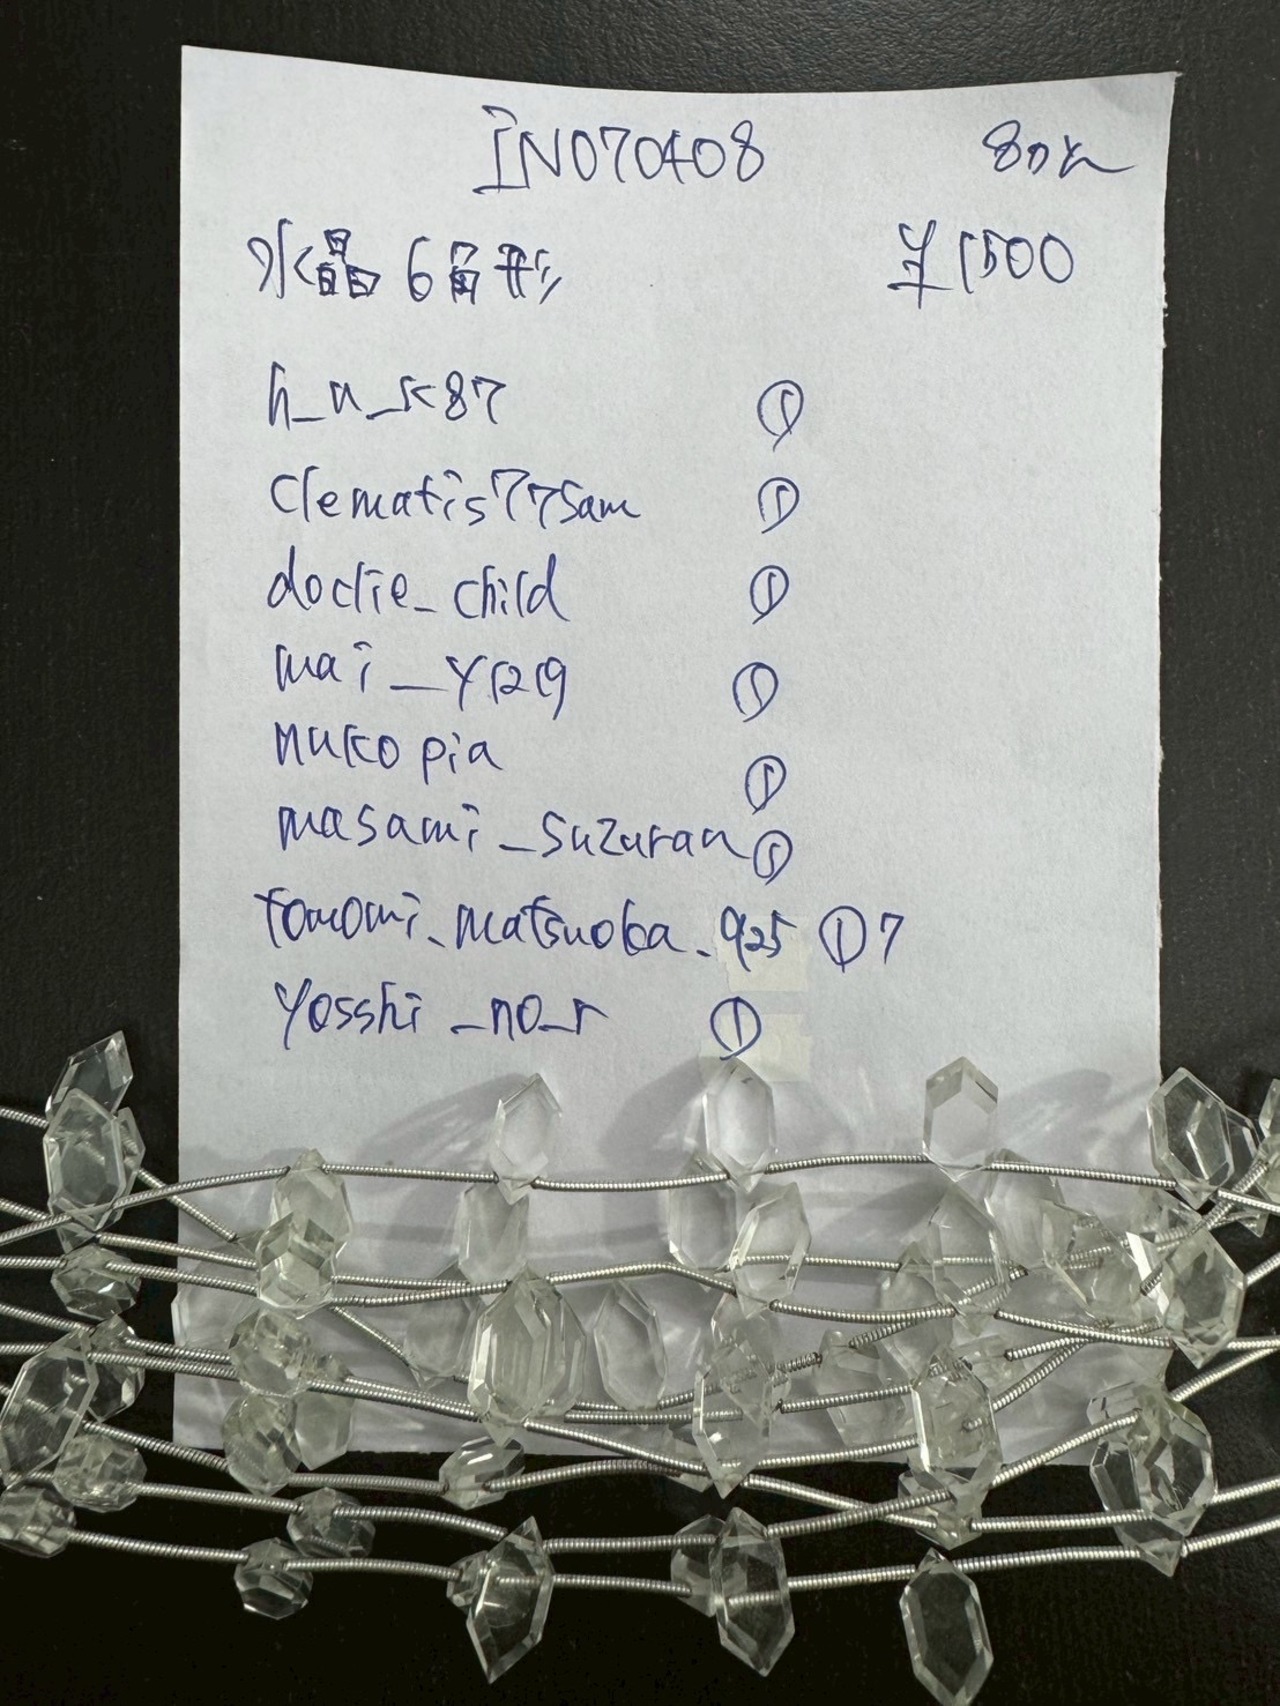 IN070408
水晶6角形 ¥1500
h_u_k87 ①
clematis77sam ①
doclie_child ①
mai_y1219 ①
nukopia ①
masami_suzuran ①
tomomi_matsuoka_925 ① 7
yosshi_no_r ①